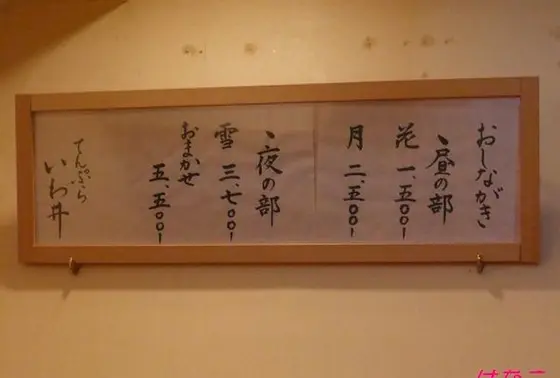 おしながき
、昼の部
花 一、五〇〇ー
月 二、五〇〇ー
、夜の部
雪 三、七〇〇ー
おまかせ
五、五〇〇ー
てんぷら
いわ井